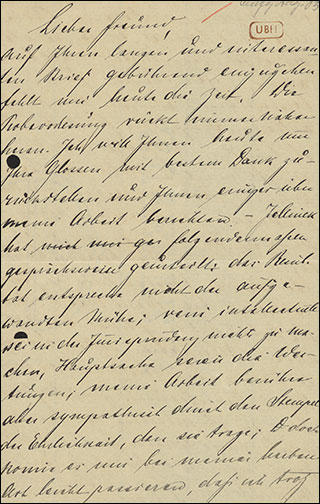 Lieber Freund,
UBH
auf Ihren langen und interessan-
ten Brief gebührend einzugehen
fehlt mir heute die Zeit. Die
Probevorlesung rückt immer näher
heran. Ich will Ihnen heute nur
Ihre Glossen mit bestem Dank zu-
rückstellen und Ihnen einiges über
meine Arbeit berichten. – Jellinek
hat mich ganz folgendermassen
gesprächsweise geurteilt: das Resul-
tat entspreche nicht der aufge-
wandten Mühe; rein intellectuell
sei in der Jurisprudenz nichts zu ma-
chen, Hauptsache seien die Wer-
tungen; meine Arbeit berühre
aber sympathisch durch den Stempel
der Ehrlichkeit, den sie trage; doch
könne es mir bei meiner herben
Art leicht passieren, daß ich trotz